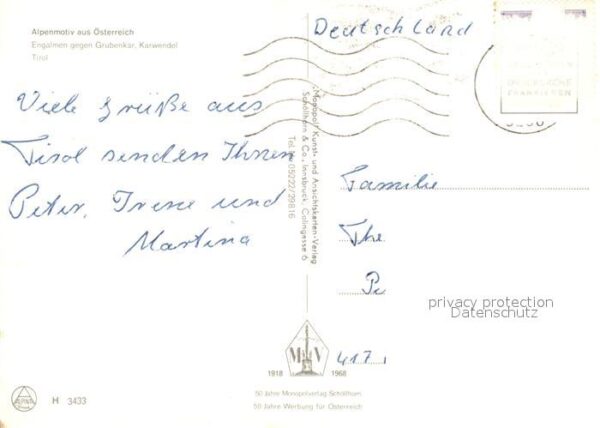 Alpenmotiv aus Österreich
Engalmen gegen Grubenkar, Karwendel
Tirol
Deutschland
Viele Grüße aus
Tirol senden Ihnen
Peter, Irene und
Martina
"Monopol" Kunst- und Ansichtskarten-Verlag
Schöllhorn & Co., Innsbruck, Colingasse 6
Tel. 05222/29816
Familie
The
Pe
417
privacy protection
Datenschutz
M V
1918 1968
50 Jahre Monopolverlag Schöllhorn
50 Jahre Werbung für Österreich
H 3433